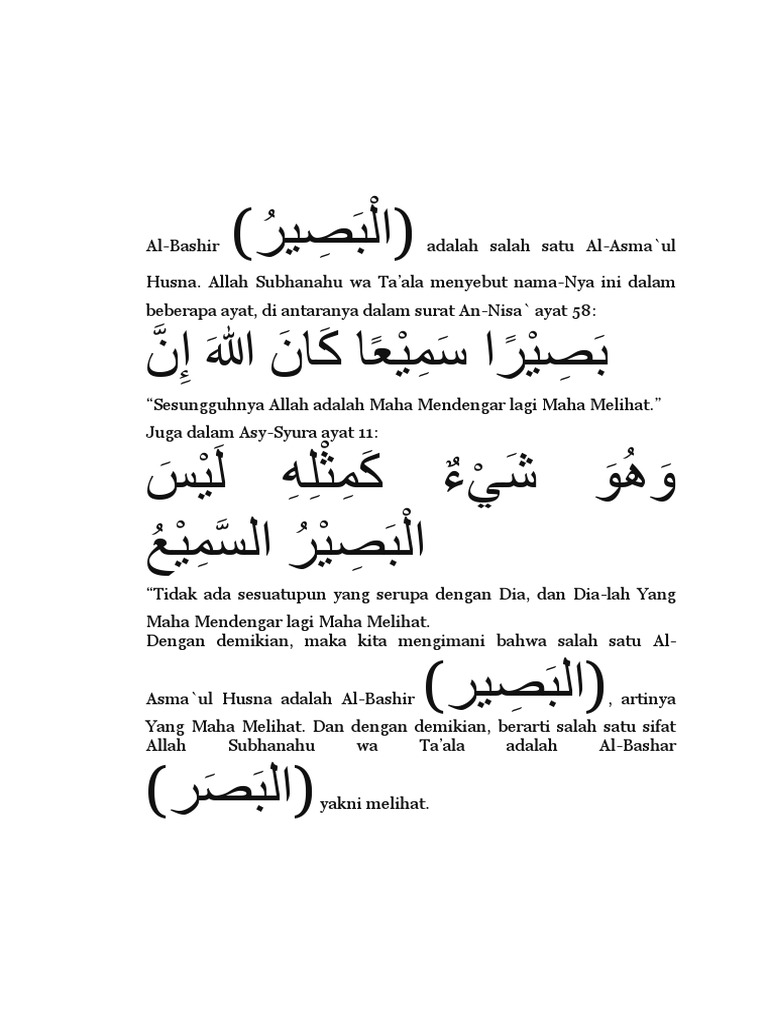 Al-Bashir (الْبَصِيرُ) adalah salah satu Al-Asma`ul
Husna. Allah Subhanahu wa Ta’ala menyebut nama-Nya ini dalam
beberapa ayat, di antaranya dalam surat An-Nisa` ayat 58:
بَصِيْرًا سَمِيْعًا كَانَ اللهَ إِنَّ
“Sesungguhnya Allah adalah Maha Mendengar lagi Maha Melihat.”
Juga dalam Asy-Syura ayat 11:
وَهُوَ شَيْءٌ كَمِثْلِهِ لَيْسَ
الْبَصِيْرُ السَّمِيْعُ
“Tidak ada sesuatupun yang serupa dengan Dia, dan Dia-lah Yang
Maha Mendengar lagi Maha Melihat.
Dengan demikian, maka kita mengimani bahwa salah satu Al-
Asma`ul Husna adalah Al-Bashir (البَصِير), artinya
Yang Maha Melihat. Dan dengan demikian, berarti salah satu sifat
Allah Subhanahu wa Ta’ala adalah Al-Bashar
(البَصَر) yakni melihat.